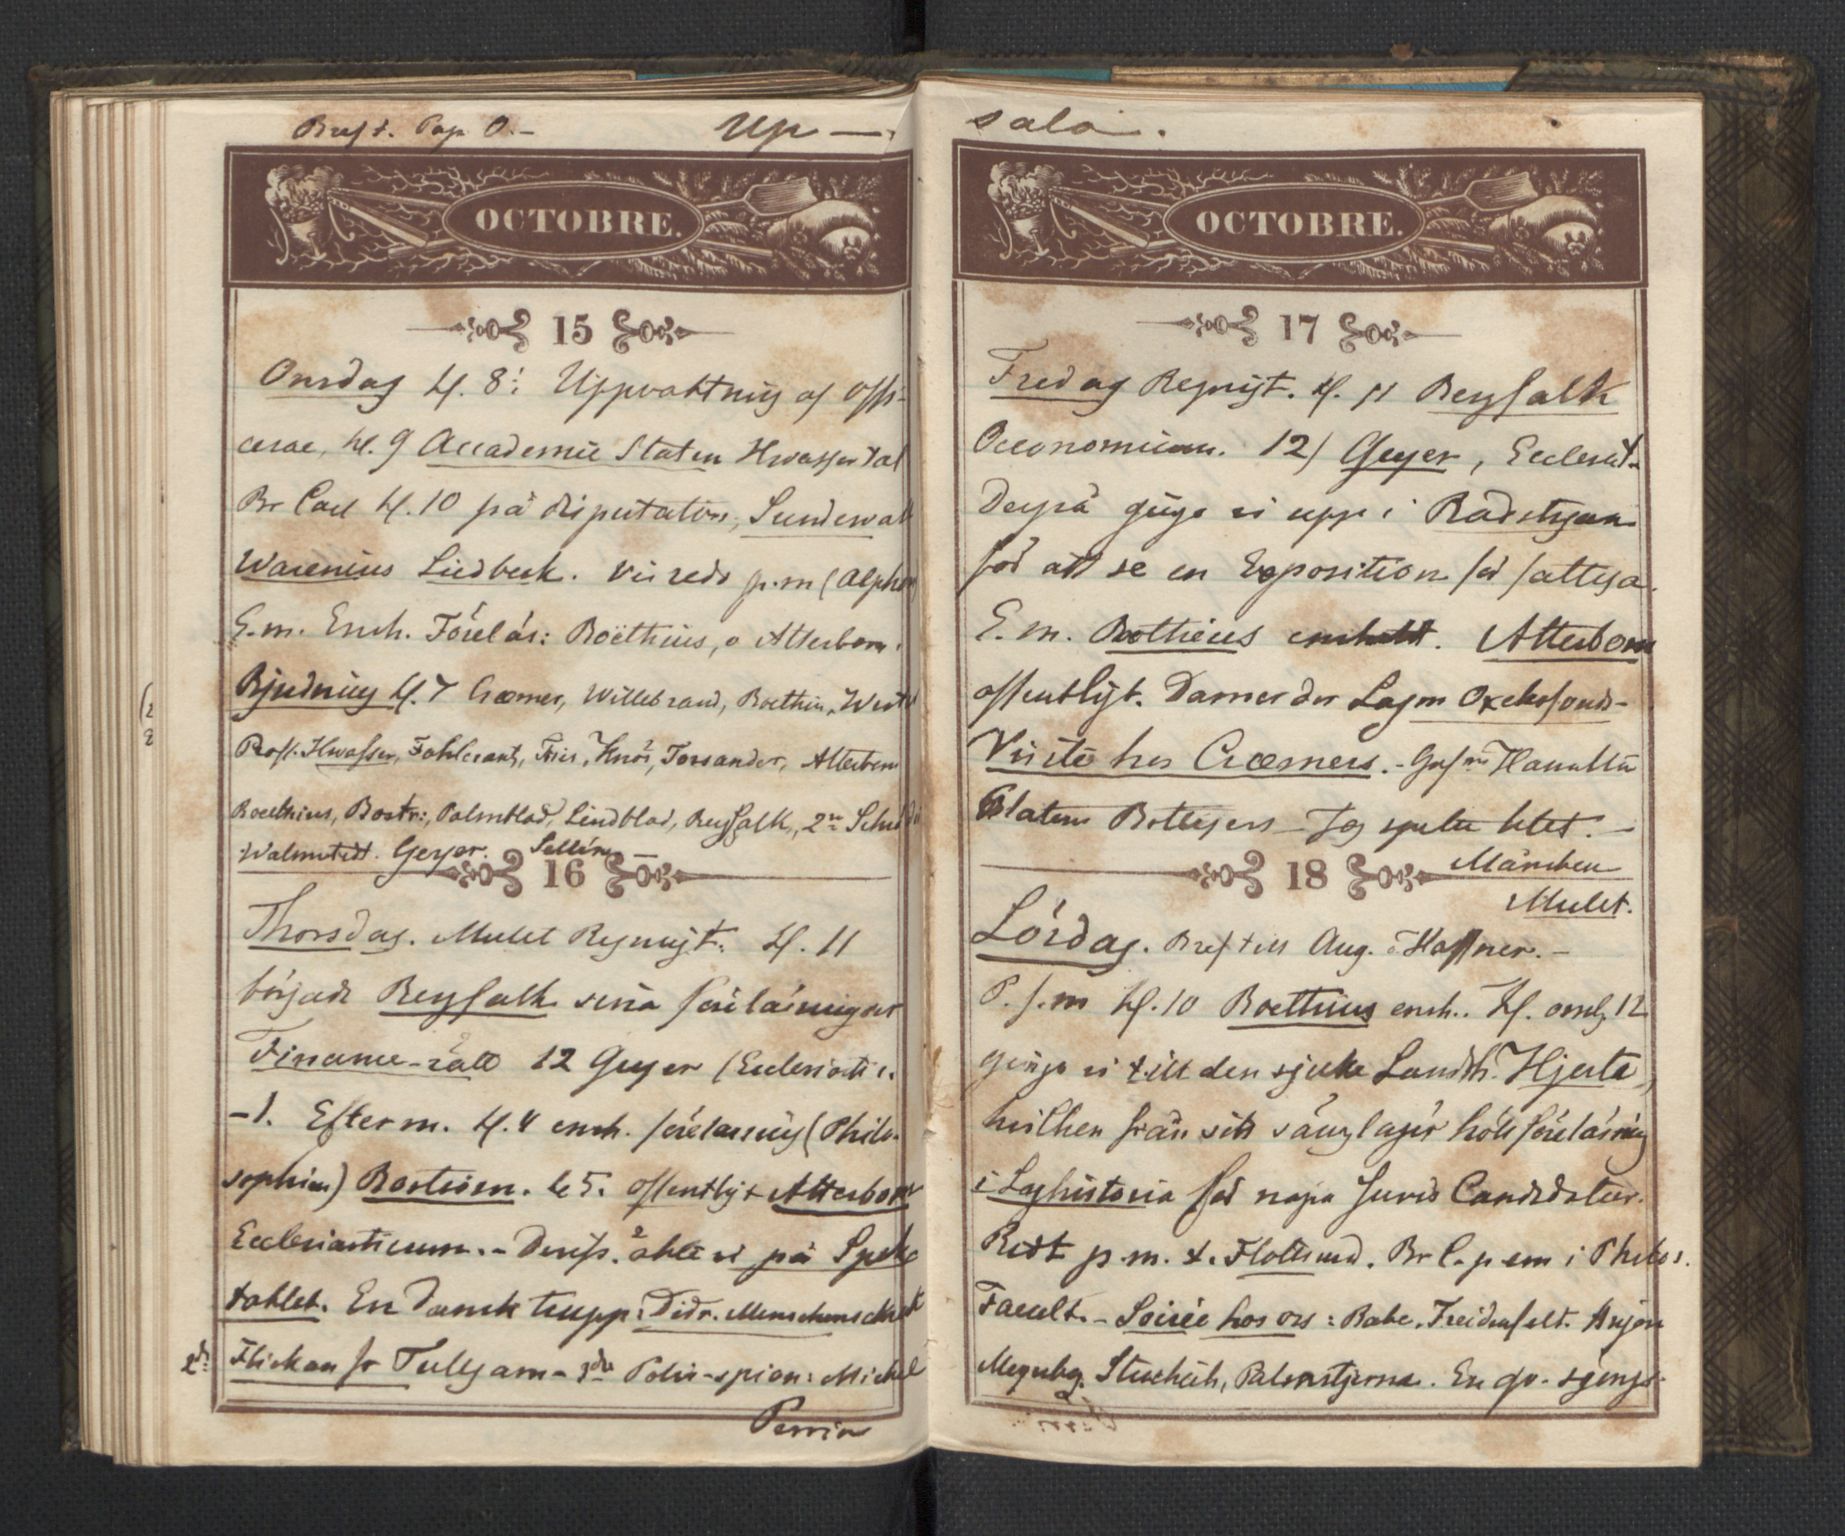 Bref t. Pap O. –
Up –
OCTOBRE.
15
Onsdag kl. 8: Uppvaktning af Offi-
cerae, kl. 9 Accademie Staten Hwasser tal
Br Carl kl. 10 på disputation, Sundewall
Warenius Liedbeck. Vi redo p.m (Alphon
E.m. Ensk. Föreläs: Boëthius, o Atterbom.
Bjudning kl. 7 Cræmer, Willebrand, Boethius,
Prof. Hwasser, Fahlcrantz, Fries, Knös, Torsander, Atterbom
Boethius, Bostr:, Palmblad, Lindblad, Bergfalk, 2ne
Walmstedt. Geyer. Sellén –
16
Thorsdag. Mulet Regnigt. kl. 11
började Bergfalk sina föreläsningar
Finance-rätt 12 Geyer (Eclesiasti c.
–1. Efterm. kl. 4 ensk. föreläsning (Philo-
sophien) Boström. kl 5. offentligt Atterbom
Ecclesiasticum. – Derefs. åkte vi på Spek
taklet. En Dansk trupp: 1 Didr. Menschenschreck
2de Flickan fr Tullgarn – 3de Polis-spion: Michel
Perrin
sala.
OCTOBRE.
17
Fredag Regnigt. kl. 11 Bergfalk
Oeconomicum. 12) Geyer, Eclesist.
Derpå gingo vi upp i Rådstugan
för att se en Exposition för fattiga.
E. m. Boëthius enskildt. Atterbom
offentligt. Damer der Lagm Oxehofvud-
Visite hos Cræmers. – Grefvin Hamilton
Platens Böttigers – Jag spelte litet. –
18
Märchen
Mulet.
Lördag. Bref till Aug. o Haffner. –
P. f.m kl. 10 Boethius ensk. kl. omkg 12
gingo vi till den sjuke Landsh. Hjerta,
hvilken från sitt sänglager höll föreläsning
i Laghistoria för några Juris Candidater.
Ridt p.m. t. Flottsund. Br C. p em i Philos.
Facult. – Soirée hos oss: Rabe, Freidenfelt. Anjou
Megnbg. Palmstjerna. En qv. sjöngs.